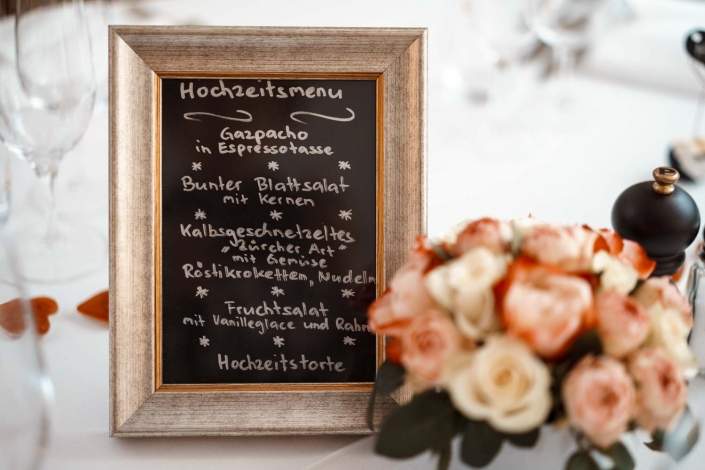 Hochzeitsmenu
Gazpacho
in Espressotasse
Bunter Blattsalat
mit Kernen
Kalbsgeschnetzeltes
„Zürcher Art“
mit Gemüse
Röstikroketten, Nudeln
Fruchtsalat
mit Vanilleglace und Rahm
Hochzeitstorte